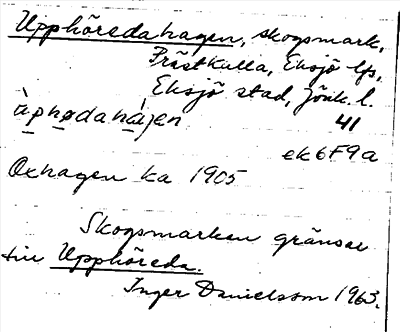 Upphöredahagen, skogsmark,
Prästkulla, Eksjö lfs,
Eksjö stad, Jönk. l.
àphødahájen
41
ek6F9a
Oxhagen ka 1905
Skogsmarken gränsar
till Upphöreda.
Inger Danielsson 1963.